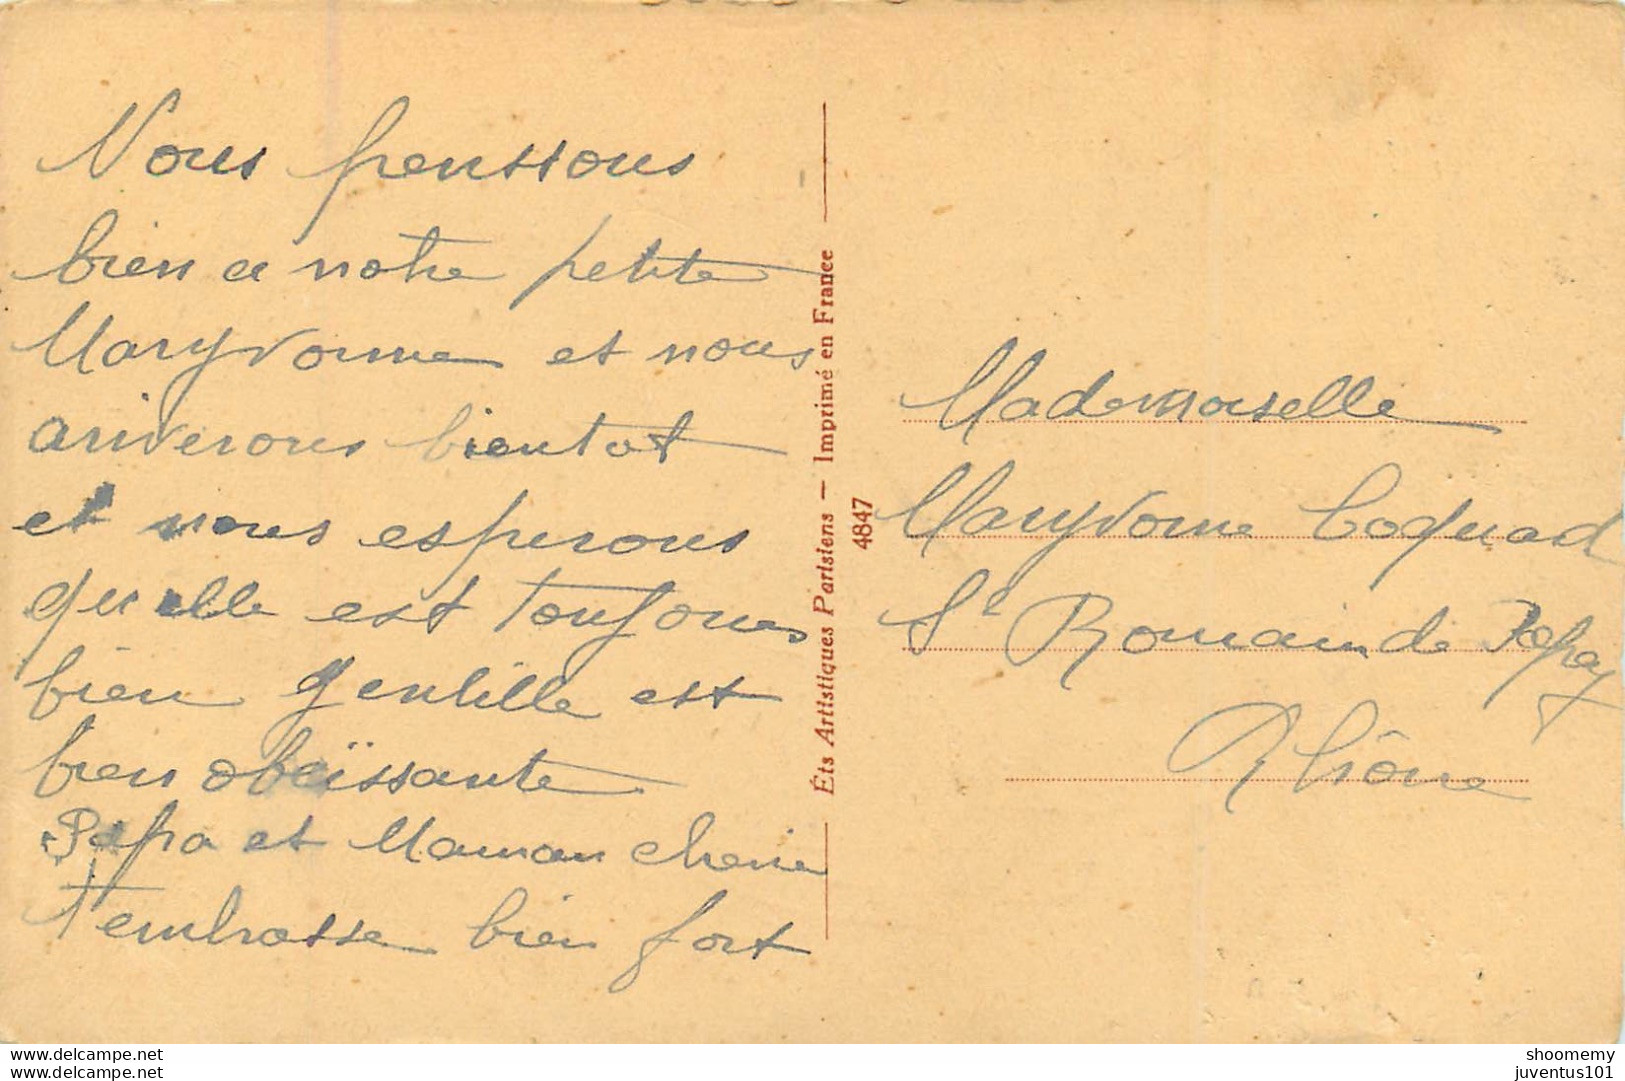 Nous penssons
bien a notre petite
Maryvonne et nous
ariverons bientot
et nous esperons
quelle est toujours
bien gentille est
bien obeïssante
Papa et Maman cherie
t'embrasse bien fort
Éts Artistiques Parisiens — Imprimé en France
4847
Mademoiselle
Maryvonne Coquad
St Romain de Popey
Rhône
www.delcampe.net
www.delcampe.net
shoomemy
juventus101